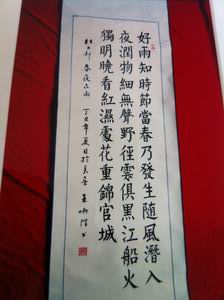 好雨知時節當春乃發生隨風潛入
夜潤物細無聲野徑雲俱黑江船火
獨明曉看紅濕處花重錦官城
杜工部 春夜喜雨 丁丑年夏日於長 王